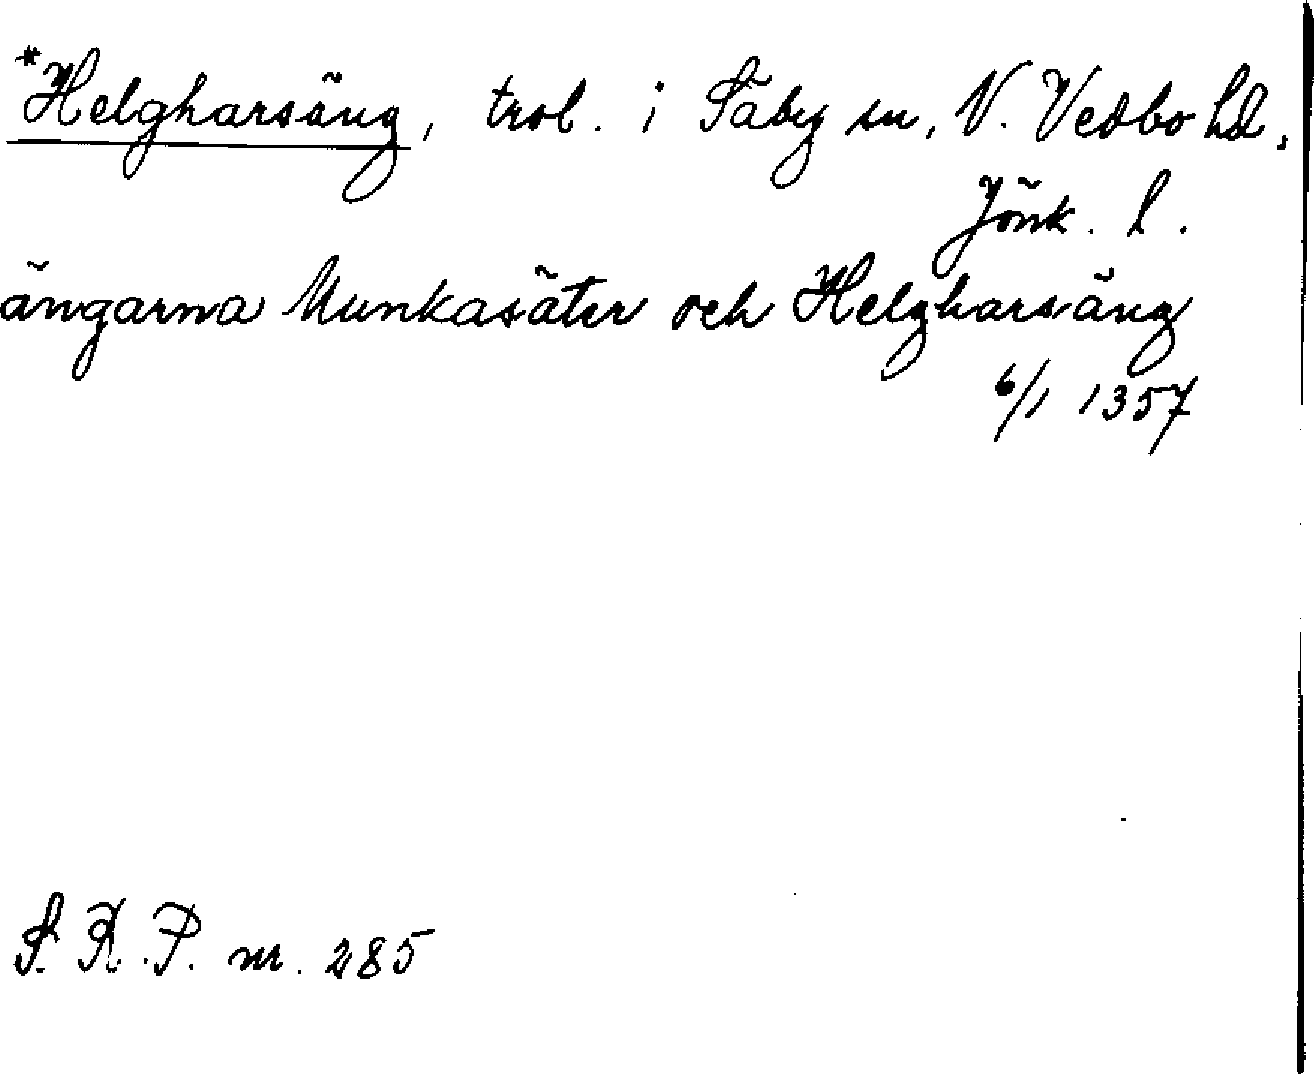 *Helgharsäng, trol. i Säby sn, N. Vedbo hd,
Jönk. l.
ängarna Munkasäter och Helgharsäng
6/1 1357
S. R. P. nr. 285